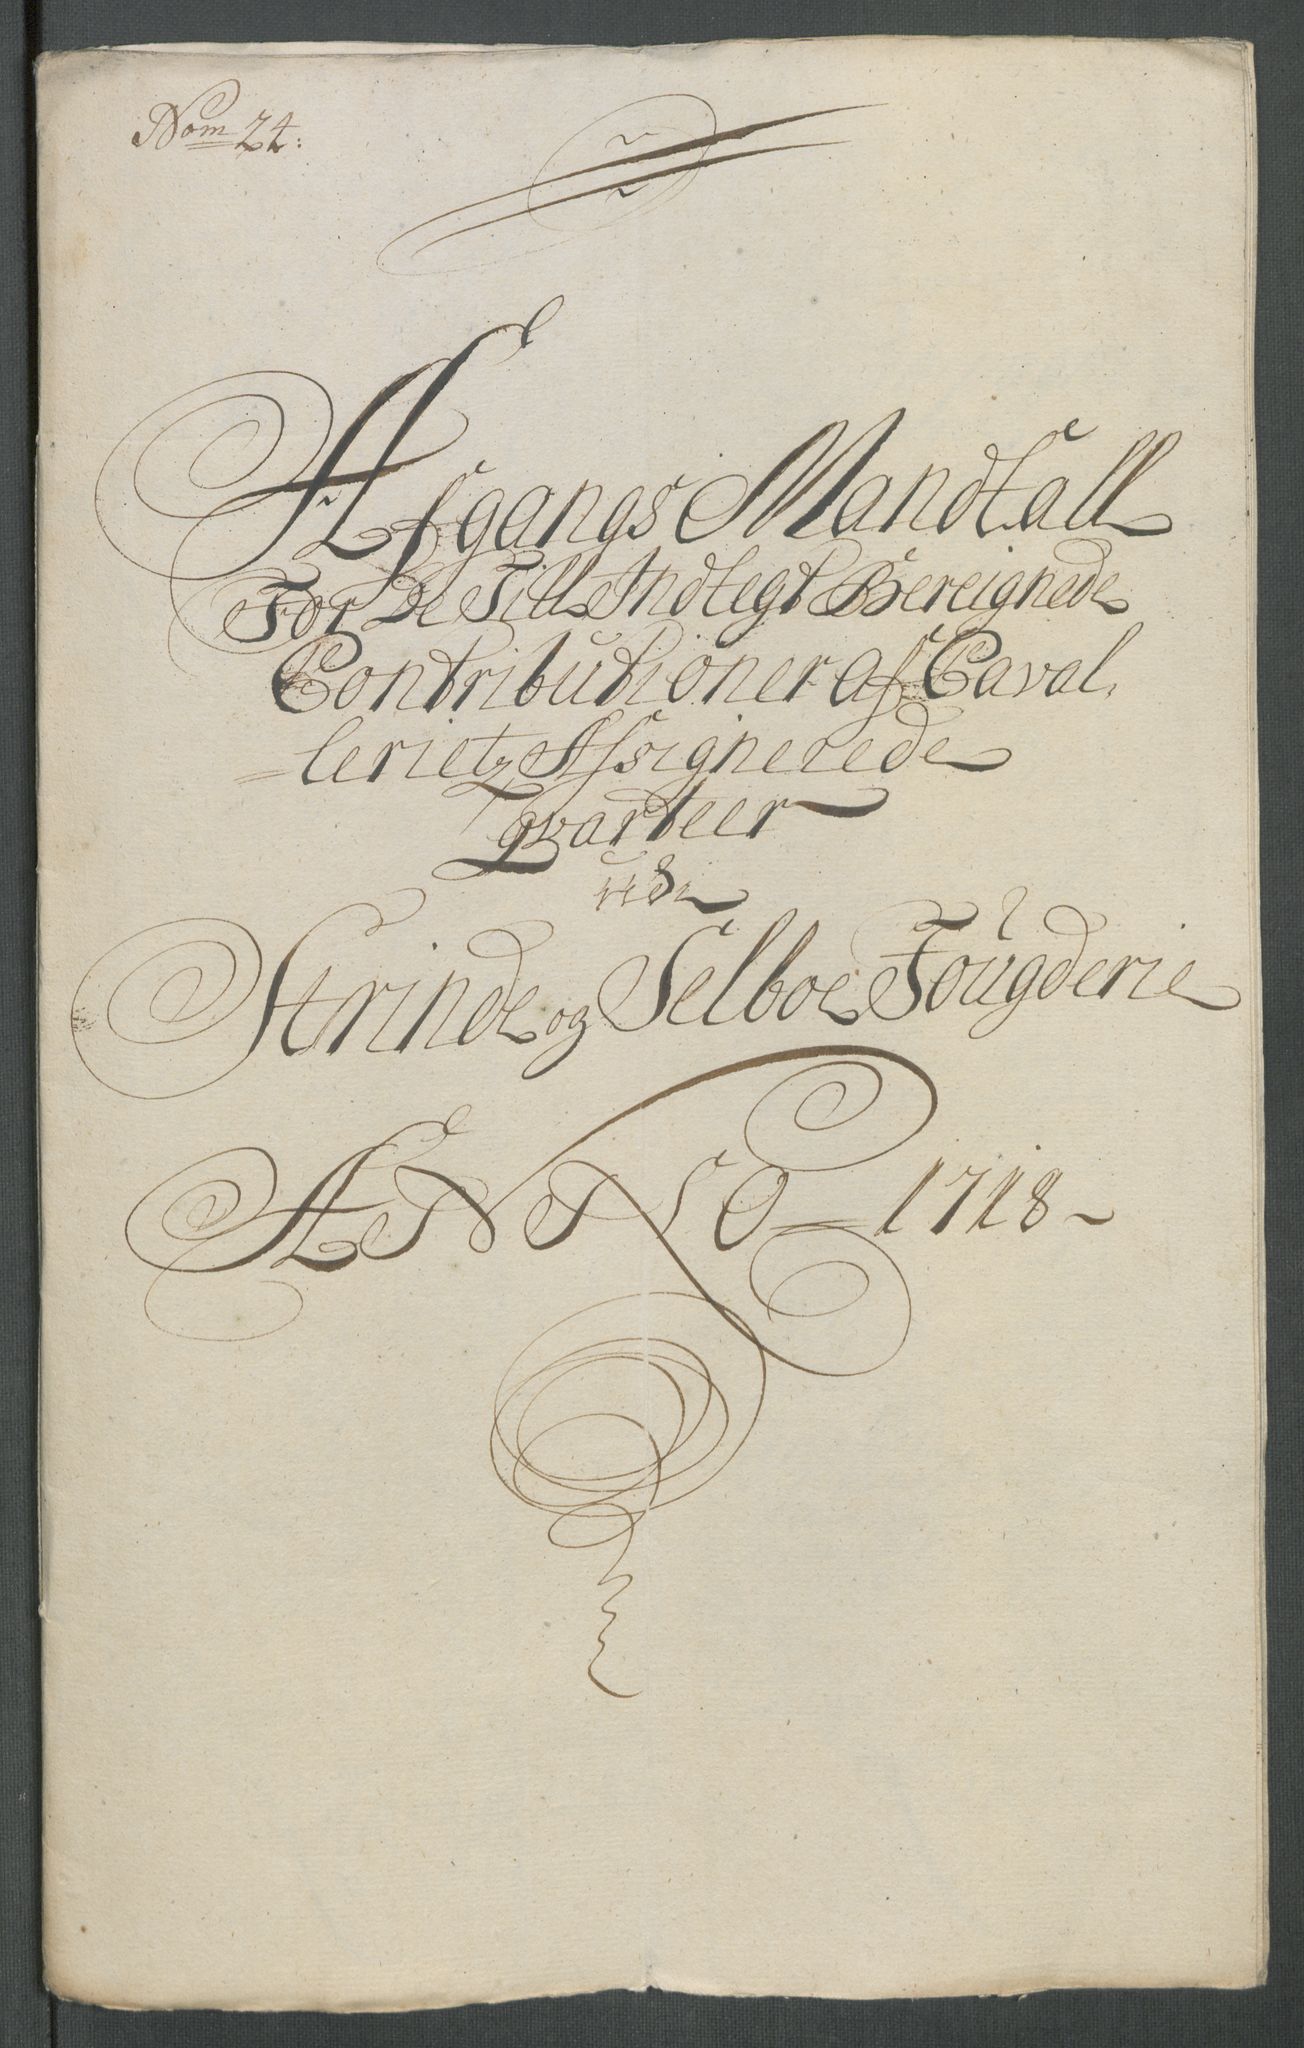 Nom 24:
Afgangs Mandtall
For De Till Indlegt Bereignede
Contributioner af Caval,
=lerietz Assignerede
Qvarteer
udi
Strinde og Selboe Fougderie
ANNO 1718